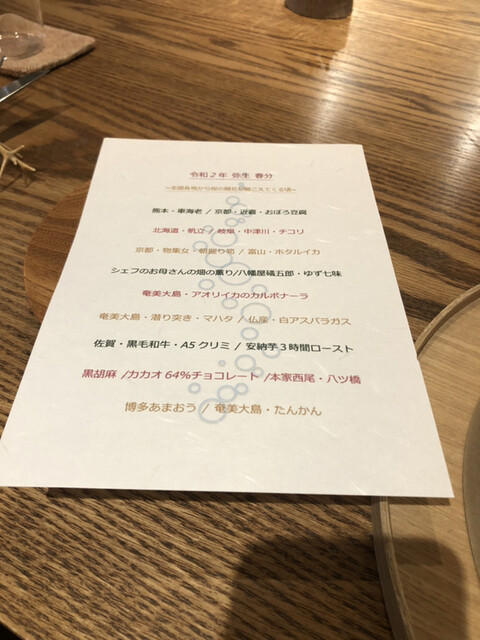 令和2年 弥生 春分
~全国各地から桜の開花が聞こえてくる頃~
熊本・車海老 / 京都・近喜・おぼろ豆腐
北海道・帆立 / 岐阜・中津川・チコリ
京都・物集女・朝掘り筍 / 富山・ホタルイカ
シェフのお母さんの畑の薫り/八幡屋礒五郎・ゆず七味
奄美大島・アオリイカのカルボナーラ
奄美大島・潜り突き・マハタ / 仏産・白アスパラガス
佐賀・黒毛和牛・A5 クリミ / 安納芋3時間ロースト
黒胡麻 /カカオ 64%チョコレート /本家西尾・八ツ橋
博多あまおう / 奄美大島・たんかん